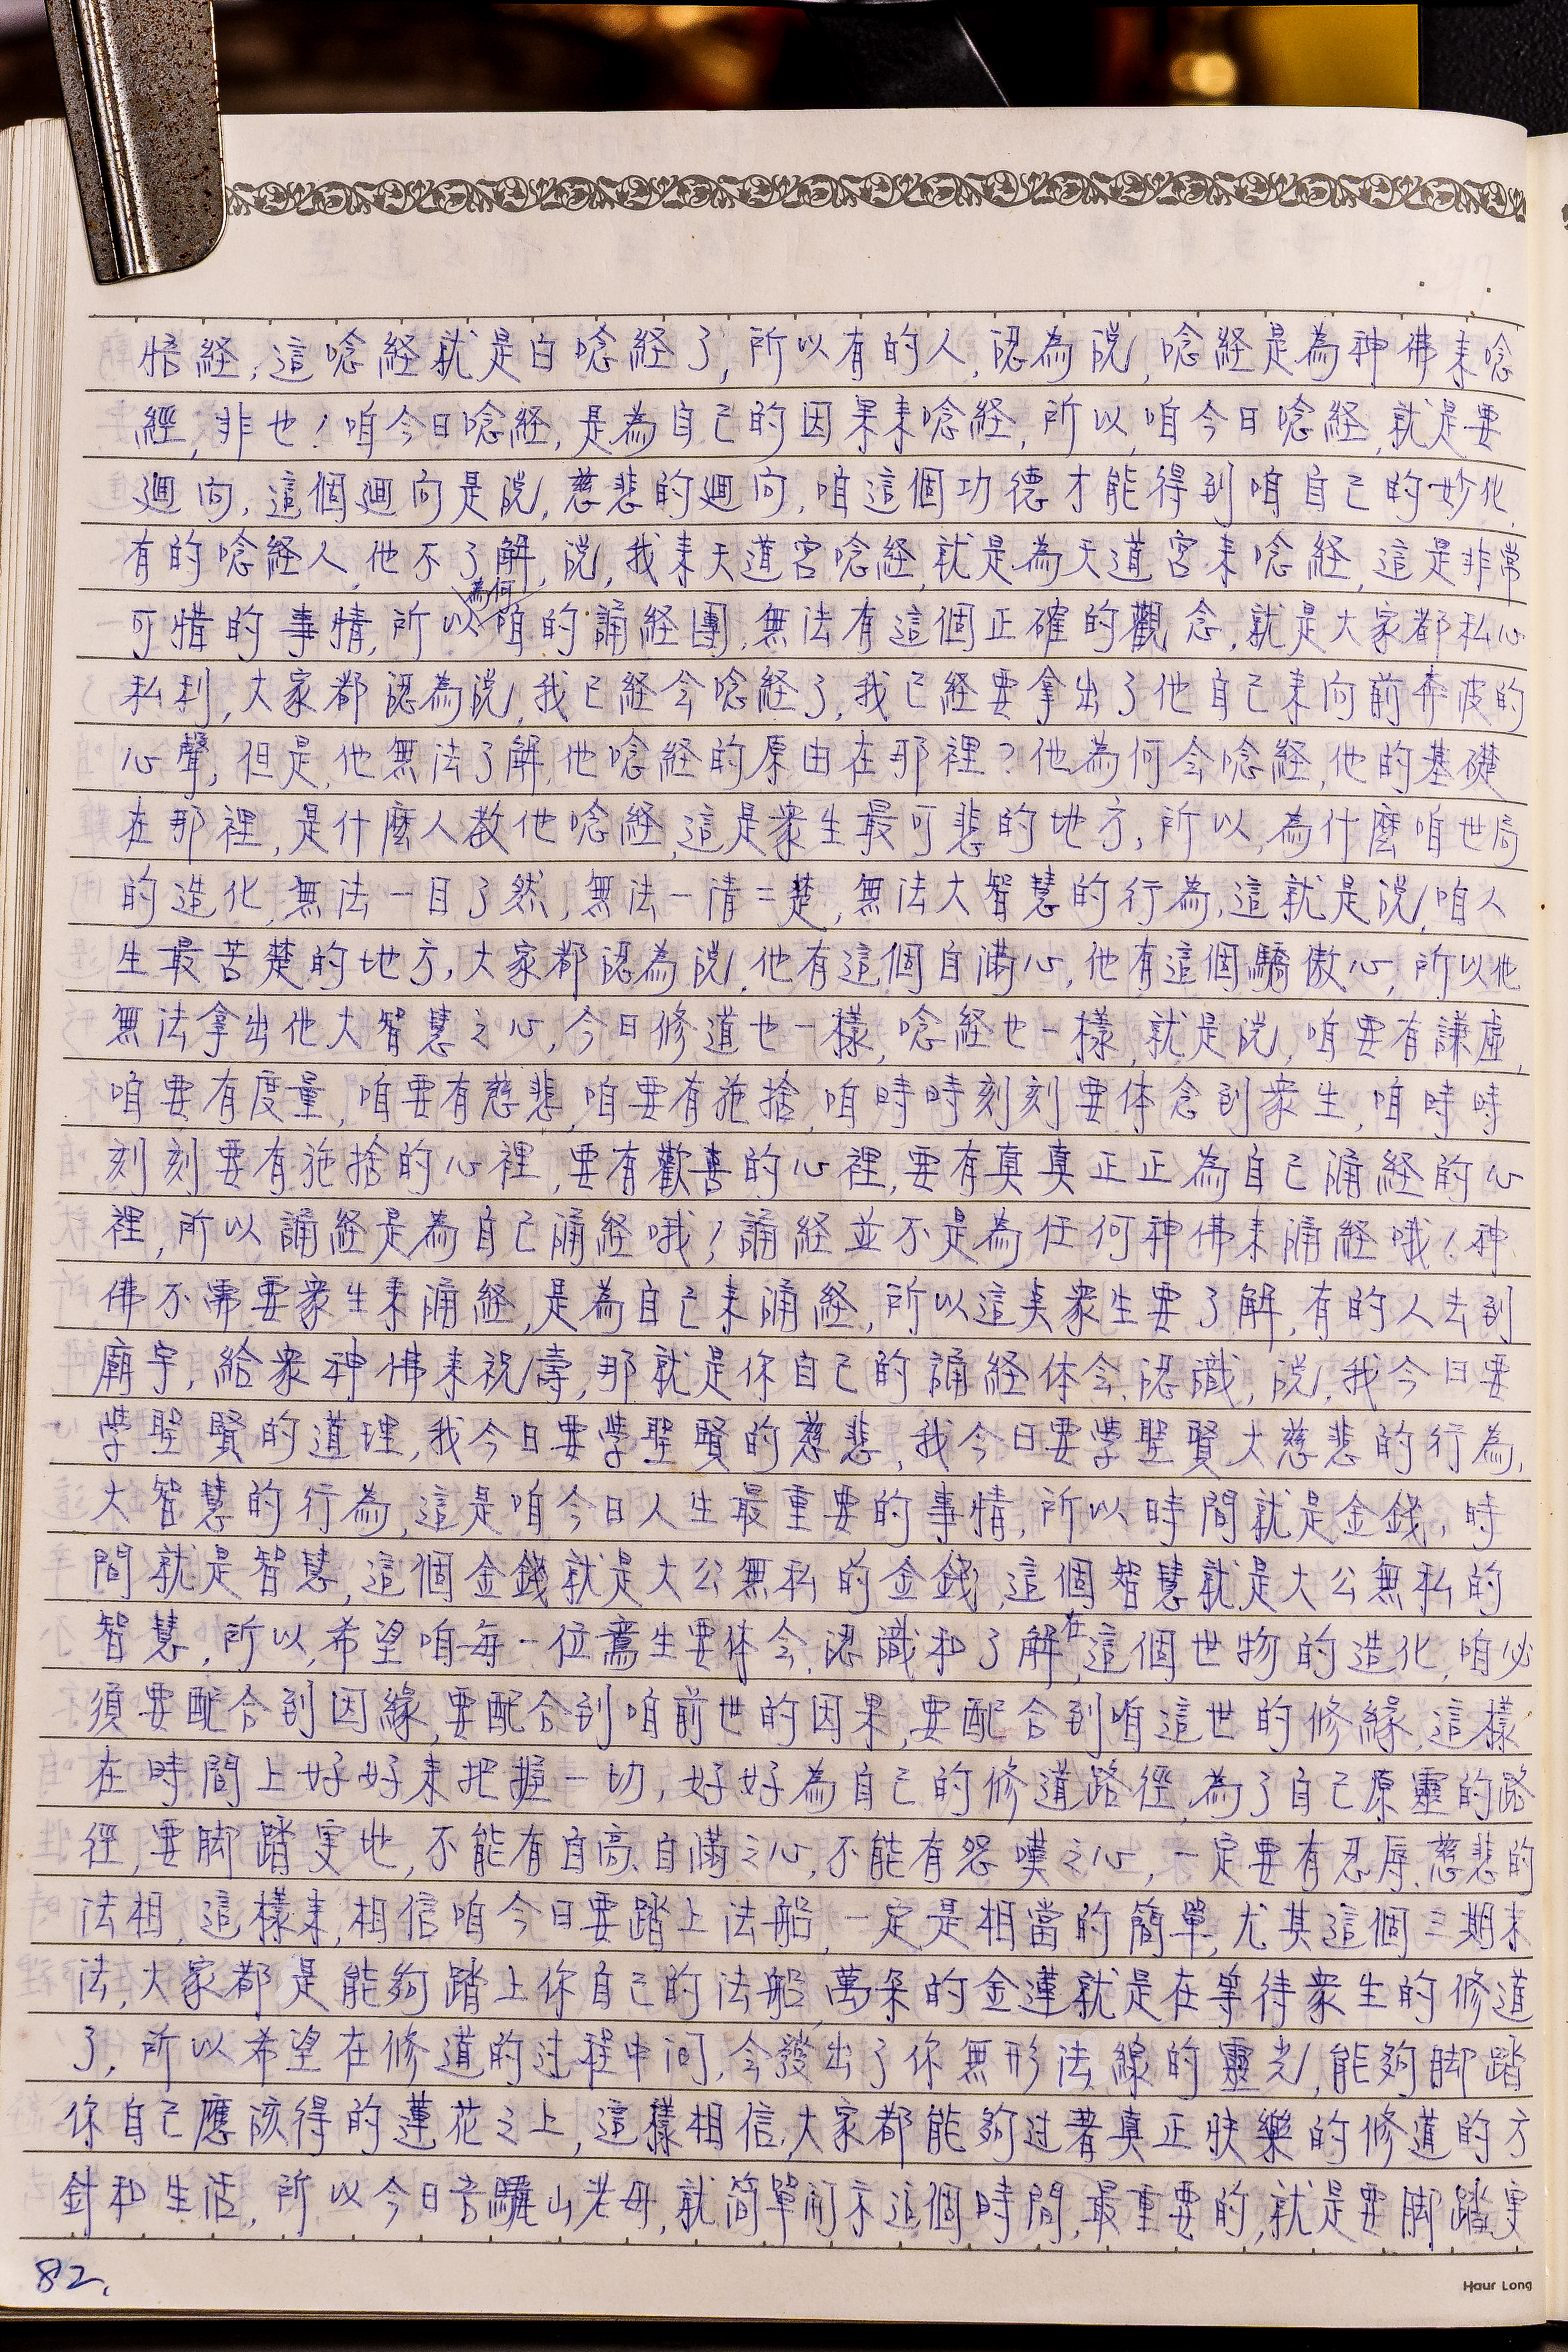 悟経,這唸経就是白唸経了,所以有的人,認為說,唸経是為神佛来唸
經,非也!咱今日唸経,是為自己的因果来唸経,所以,咱今日唸経,就是要
迴向,這個迴向是說,慈悲的迴向,咱這個功德才能得到咱自己的妙化,
有的唸経人,他不了解,說,我来天道宮唸経,就是為天道宮来唸経,這是非常
可惜的事情,所以為何咱的誦経團,無法有這個正確的觀念,就是大家都私心
私利,大家都認為說,我已経会唸経了,我已経要拿出了他自己来向前奔波的
心聲,但是,他無法了解,他唸経的原由在那裡?他為何会唸経,他的基礎
在那裡,是什麼人教他唸経,這是衆生最可悲的地方,所以,為什麼咱世局
的造化,無法一目了然,無法一清二楚,無法大智慧的行為,這就是說,咱人
生最苦楚的地方,大家都認為說,他有這個自滿心,他有這個驕傲心,所以他
無法拿出他大智慧之心,今日修道也一樣,唸経也一樣,就是說,咱要有謙虛,
咱要有度量,咱要有慈悲,咱要有施捨,咱時時刻刻要体念到衆生,咱時時
刻刻要有施捨的心裡,要有歡喜的心裡,要有真真正正為自己誦経的心
裡,所以誦経是為自己誦経哦!誦経並不是為任何神佛来誦経哦!神
佛不需要衆生来誦経,是為自己来誦経,所以這奌衆生要了解,有的人去到
廟宇,給衆神佛来祝壽,那就是你自己的誦経体会、認識,說,我今日要
學聖賢的道理,我今日要學聖賢的慈悲,我今日要學聖賢大慈悲的行為,
大智慧的行為,這是咱今日人生最重要的事情,所以時間就是金錢,時
間就是智慧,這個金錢就是大公無私的金錢,這個智慧就是大公無私的
智慧,所以,希望咱每一位鸞生要体会、認識和了解,在這個世物的造化,咱必
須要配合到因緣,要配合到咱前世的因果,要配合到咱這世的修緣,這樣
在時間上好好来把握一切,好好為自己的修道路徑,為了自己原靈的路
徑,要脚踏実地,不能有自高、自滿之心,不能有怨嘆之心,一定要有忍辱、慈悲的
法相,這樣来,相信咱今日要踏上法船,一定是相當的簡單,尤其這個三期末
法,大家都是能夠踏上你自己的法船,萬朵的金蓮就是在等待衆生的修道
了,所以希望在修道的过程中间,会發出了你無形法線的靈光,能夠脚踏
你自己應該得的蓮花之上,這樣相信,大家都能夠过著真正快樂的修道的方
針和生活,所以今日吾驪山老母,就简單開示這個時間,最重要的,就是要脚踏実
82,
Haur Long